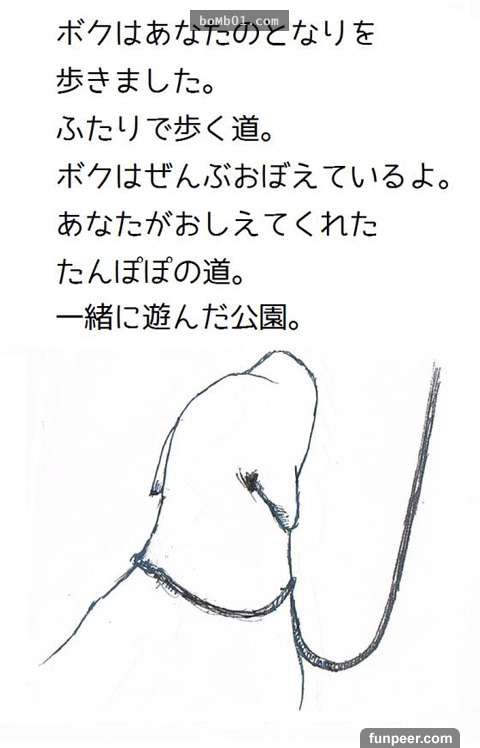 boMb01.com
ボクはあなたのとなりを
歩きました。
ふたりで歩く道。
ボクはぜんぶおぼえているよ。
あなたがおしえてくれた
たんぽぽの道。
一緒に遊んだ公園。
funpeer.com